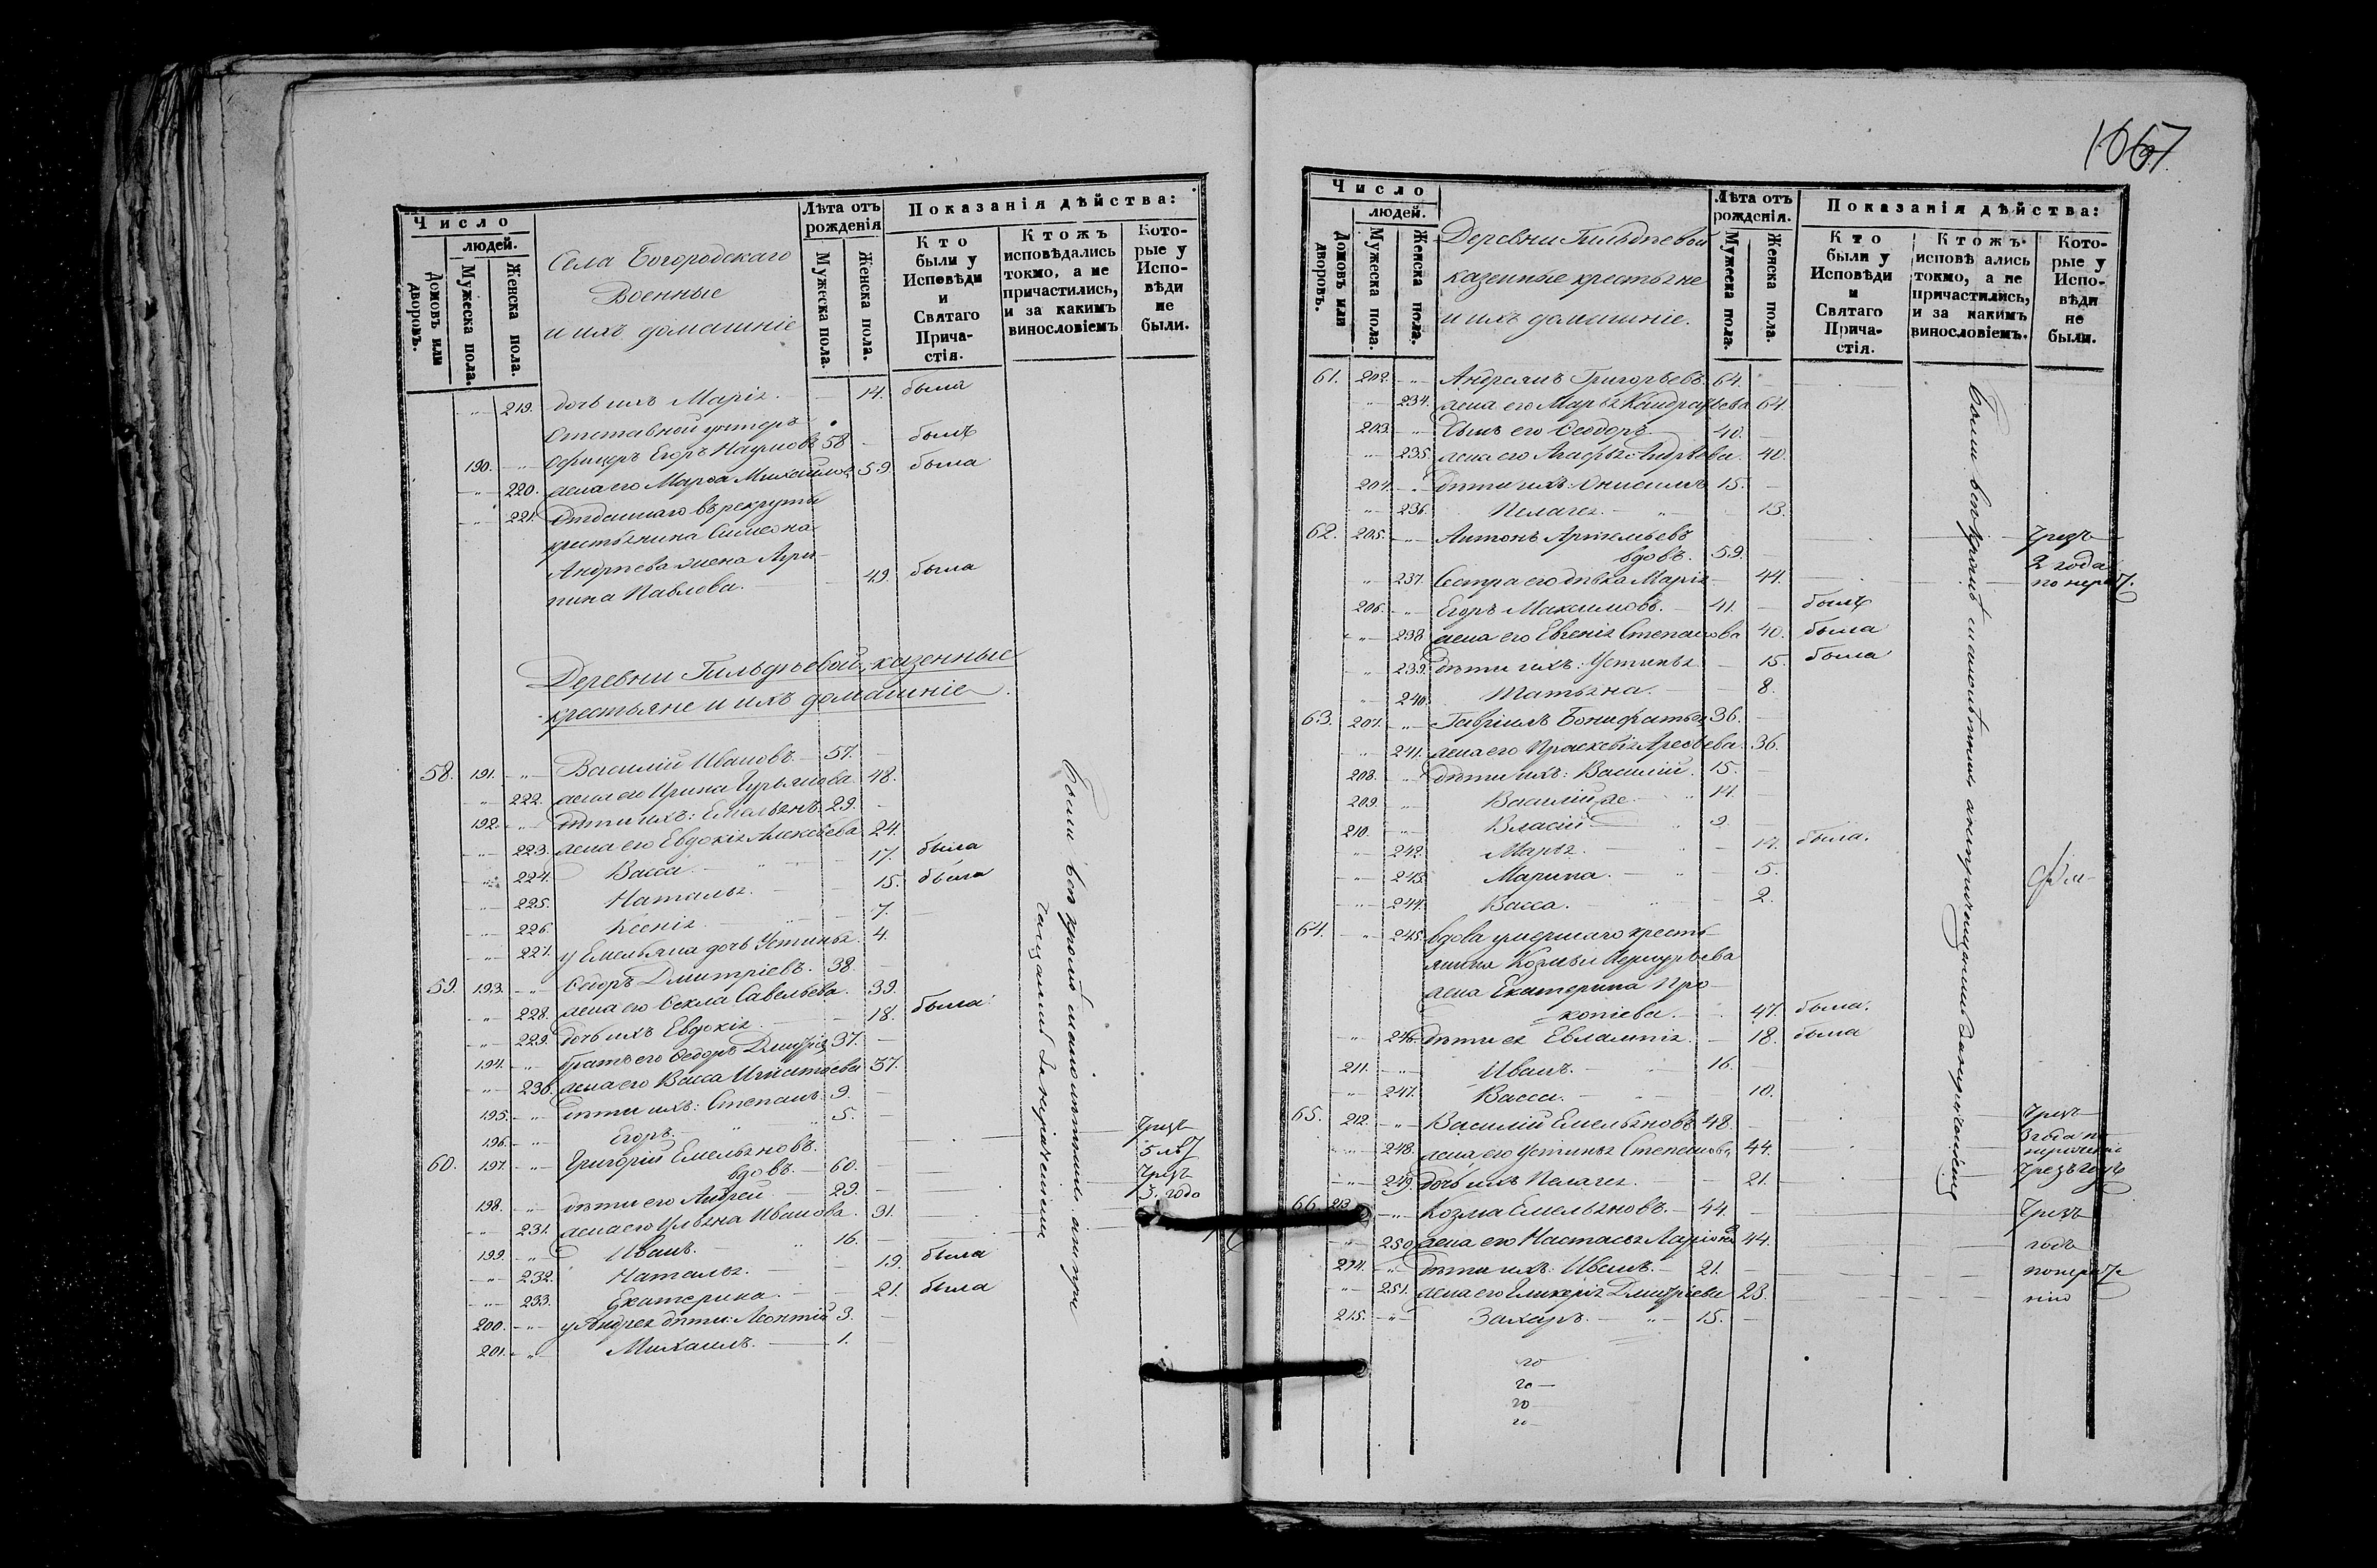 Число
людей.
Домовъ или дворовъ.
Мужеска пола.
Женска пола.
Села Богородскаго
Военные
и ихъ домашніе
Лѣта отъ рожденія
Мужеска пола.
Женска пола.
Показанія дѣйства:
Кто были у Исповѣди и Святаго Причастія.
Ктожъ исповѣдались токмо, а не причастились, и за какимъ винословіемъ
Которые у Исповѣди не были.
219. дочь ихъ Марія. 14. была
Отставной унтеръ
190. Офицеръ Егоръ Наумовъ 58 былъ
220. жена его Марѳа Михайлов 59 была
221. Отданнаго въ рекруты
крестьянина Симеона
Андреева жена Агри-
пина Павлова. 49. была
Деревни Гильдѣевой, казенные
крестьяне и ихъ домашніе.
58. 191. Василій Ивановъ 57.
222. жена его Ирина Гурьянова 48.
192. дѣти ихъ: Емельянъ 29.
223. жена его Евдокія Алексѣева 24.
224. Васса 17. была
225. Наталья 15. была
226. Ксенія 7.
227. у Емельяна дочь Устинья. 4.
59. 193. Сидоръ Дмитріевъ. 38.
228. жена его Ѳекла Савельева. 39.
229. дочь ихъ Евдокія 18. была
194. братъ его Ѳедоръ Дмитрі 37.
230. жена его Васса Игнатьева 37.
195. дѣти ихъ: Степанъ 9.
196. Егоръ 5.
60. 197. Григорій Емельяновъ
вдовъ. 60. Чрезъ 5 лѣт
198. дѣти его Андрей 29. Чрезъ 3. года
231. жена его Ульяна Иванова. 31.
199. Иванъ. 16.
232. Наталья. 19. была
233. Екатерина. 21. была
200. у Андрея дѣти: Леонтій 3.
201. Михаилъ. 1.
Были всѣ кромѣ малолѣтнихъ а не при
чащались за нераченіемъ
Число
людей.
Домовъ или дворовъ.
Мужеска пола.
Женска пола.
Деревни Гильдѣевой
казенные крестьяне
и ихъ домашніе.
Лѣта отъ рожденія.
Мужеска пола.
Женска пола.
Показанія дѣйства:
Кто были у Исповѣди и Святаго Причастія.
Ктожъ исповѣ ались токмо, а не причастились, и за какимъ винословіемъ.
Которые у Исповѣди не были.
61. 202. Андреянъ Григорьевъ 64.
234. жена его Марья Кондратьева 64.
203. Сынъ его Ѳеодоръ 40.
235. жена его Агафья Андрѣева 40.
204. дѣти ихъ: Онисимъ 15.
236. Пелагея. 13.
62. 205. Антонъ Артемьевъ
вдовъ. 59. Чрезъ 2 года
237. Сестра его дѣвка Марія 44. по нера
206. Егоръ Максимовъ. 41. былъ
238. жена его Евгенія Степанова 40. была
239. дѣти ихъ: Устинья 15. была
240. Татьяна. 8.
63. 207. Гавріилъ Бонифатьев 36.
241. жена его Праскевія Арефьева. 36.
208. дѣти ихъ: Василій. 15.
209. Василій же 14.
210. Власій 9.
242. Марья. 17. была.
243. Марина. 5.
244. Васса. 2.
64. 245. вдова умершаго кресть
янина Козмы
жена Екатерина Про-
копіева. 47. была.
246. дѣти ея Евлампія. 18. была
211. Иванъ. 16.
247. Васса. 10.
65. 212. Василій Емельяновъ 48. Чрезъ 3 года по
248. жена его Устинья Степанова 44. нераченію
249. дочь ихъ Пелагея. 21. Чрезъ годъ
66. 213 Козма Емельяновъ. 44. Чрезъ
250 жена его Настасья Ларіонова 44. годъ
214. дѣти ихъ: Иванъ. 21. понераче
251. жена его Гликерія Дмитріева 23. нію
215. Захаръ. 15.
Были всѣ кромѣ малолѣтнихъ а не причащались за нераченіемъ